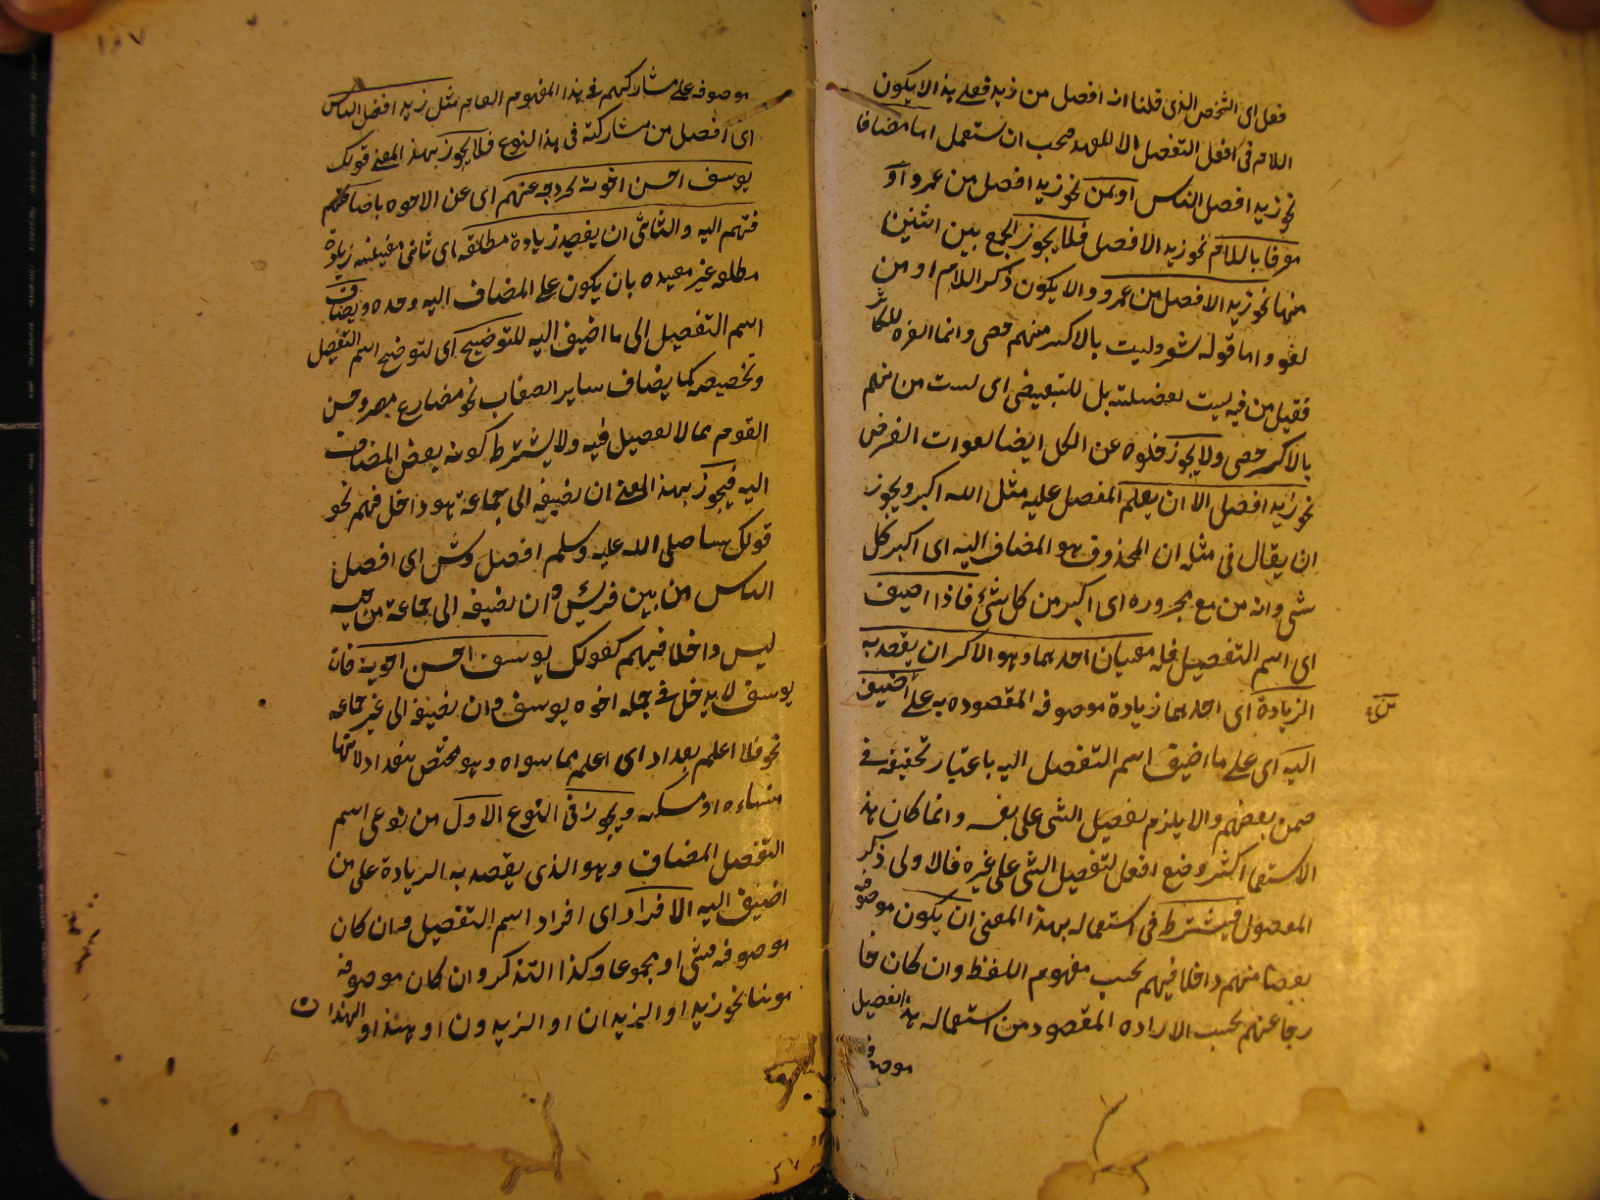 فعل اى الشخص الذى قلنا انه افضل من زيد فعلى هذا لا يكون
اللام فى افعل التفضيل الا للعهد فيجب ان يستعمل اما مضافا
نحو زيد افضل الناس او بمن نحو زيد افضل من عمرو او
معرفا باللام نحو زيد الافضل فلا يجوز الجمع بين اثنين
منها نحو زيد الافضل من عمرو والا يكون ذكر اللام او من
لغو واما قوله شعر ولست بالاكثر منهم حصى وانما العزة للكاثر
فقيل من فيه ليست تفضيلية بل للتبعيض اى لست من بينهم
بالاكثر حصى ولا يجوز خلوه عن الكل ايضا لفوات الغرض
نحو زيد افضل الا ان يعلم المفضل عليه مثل الله اكبر ويجوز
ان يقال فى مثله ان المحذوف هو المضاف اليه اى اكبر كل
شئ وانه من مع مجروره اى اكبر من كل شئ فاذا اضيف
اى اسم التفضيل فله معنيان احدهما وهو الاكثر ان يقصد به
الزيادة اى احدهما زيادة موصوفه المقصوده به على من اضيف
اليه اى على ما اضيف اسم التفضيل اليه باعتبار تحقيقه فى
ضمن بعضهم والا يلزم تفضيل الشى على نفسه وانما كان هذا
الاستعمال اكثر وضع افعل لتفضيل الشى على غيره فالاولى ذكر
المفضول فيشترط فى استعماله بهذا المعنى ان يكون موصوفه
بعضا منهم داخلا فيهم بحسب مفهوم اللفظ وان كان خا
رجا عنهم بحسب الاراده المقصود من استعماله هذا تفضيل
موصوفه
١٥٧
موصوفه على مشاركيهم فى هذا المفهوم العام مثل زيد افضل الناس
اى افضل من مشاركيه فى هذا النوع فلا يجوز بهذا المعنى قولك
يوسف احسن اخوته لخروجه عنهم اى عن الاخوه باضافتهم
فتهم اليه والثانى ان يقصد زيادة مطلقه اى ثانى معنييه زيادة
مطلقه غير مقيده بان يكون على المضاف اليه وحده ويضاف
اسم التفضيل الى ما اضيف اليه للتوضيح اى لتوضيح اسم التفضيل
وتخصيصه كما يضاف ساير الصفات نحو مضارع مصر وحسن
القوم مما لا تفضيل فيه ولا يشترط كونه بعض المضاف
اليه فيجوز بهذا المعنى ان تضيفه الى جماعة هو داخل فيهم نحو
قولك نبينا صلى الله عليه وسلم افضل قريش اى افضل
الناس من بين قريش وان تضيفه الى جماعة من جنسه
ليس داخلا فيهم كقولك يوسف احسن اخوته فان
يوسف لا يدخل فى جمله اخوه يوسف وان تضيفه الى غير جماعه
نحو فلان اعلم بغداد اى اعلم مما سواه وهو مختص ببغداد لانها
منشاءه او مسكنه ويجوز فى النوع الاول من نوعى اسم
التفضيل المضاف وهو الذى يقصد به الزيادة على من
اضيف اليه الافراد اى افراد اسم التفضيل وان كان
موصوفه مثنى او مجموعا وكذا التذكير وان كان موصوفه
مونثا نحو زيد او الزيدان او الزيدون او هند او الهندان